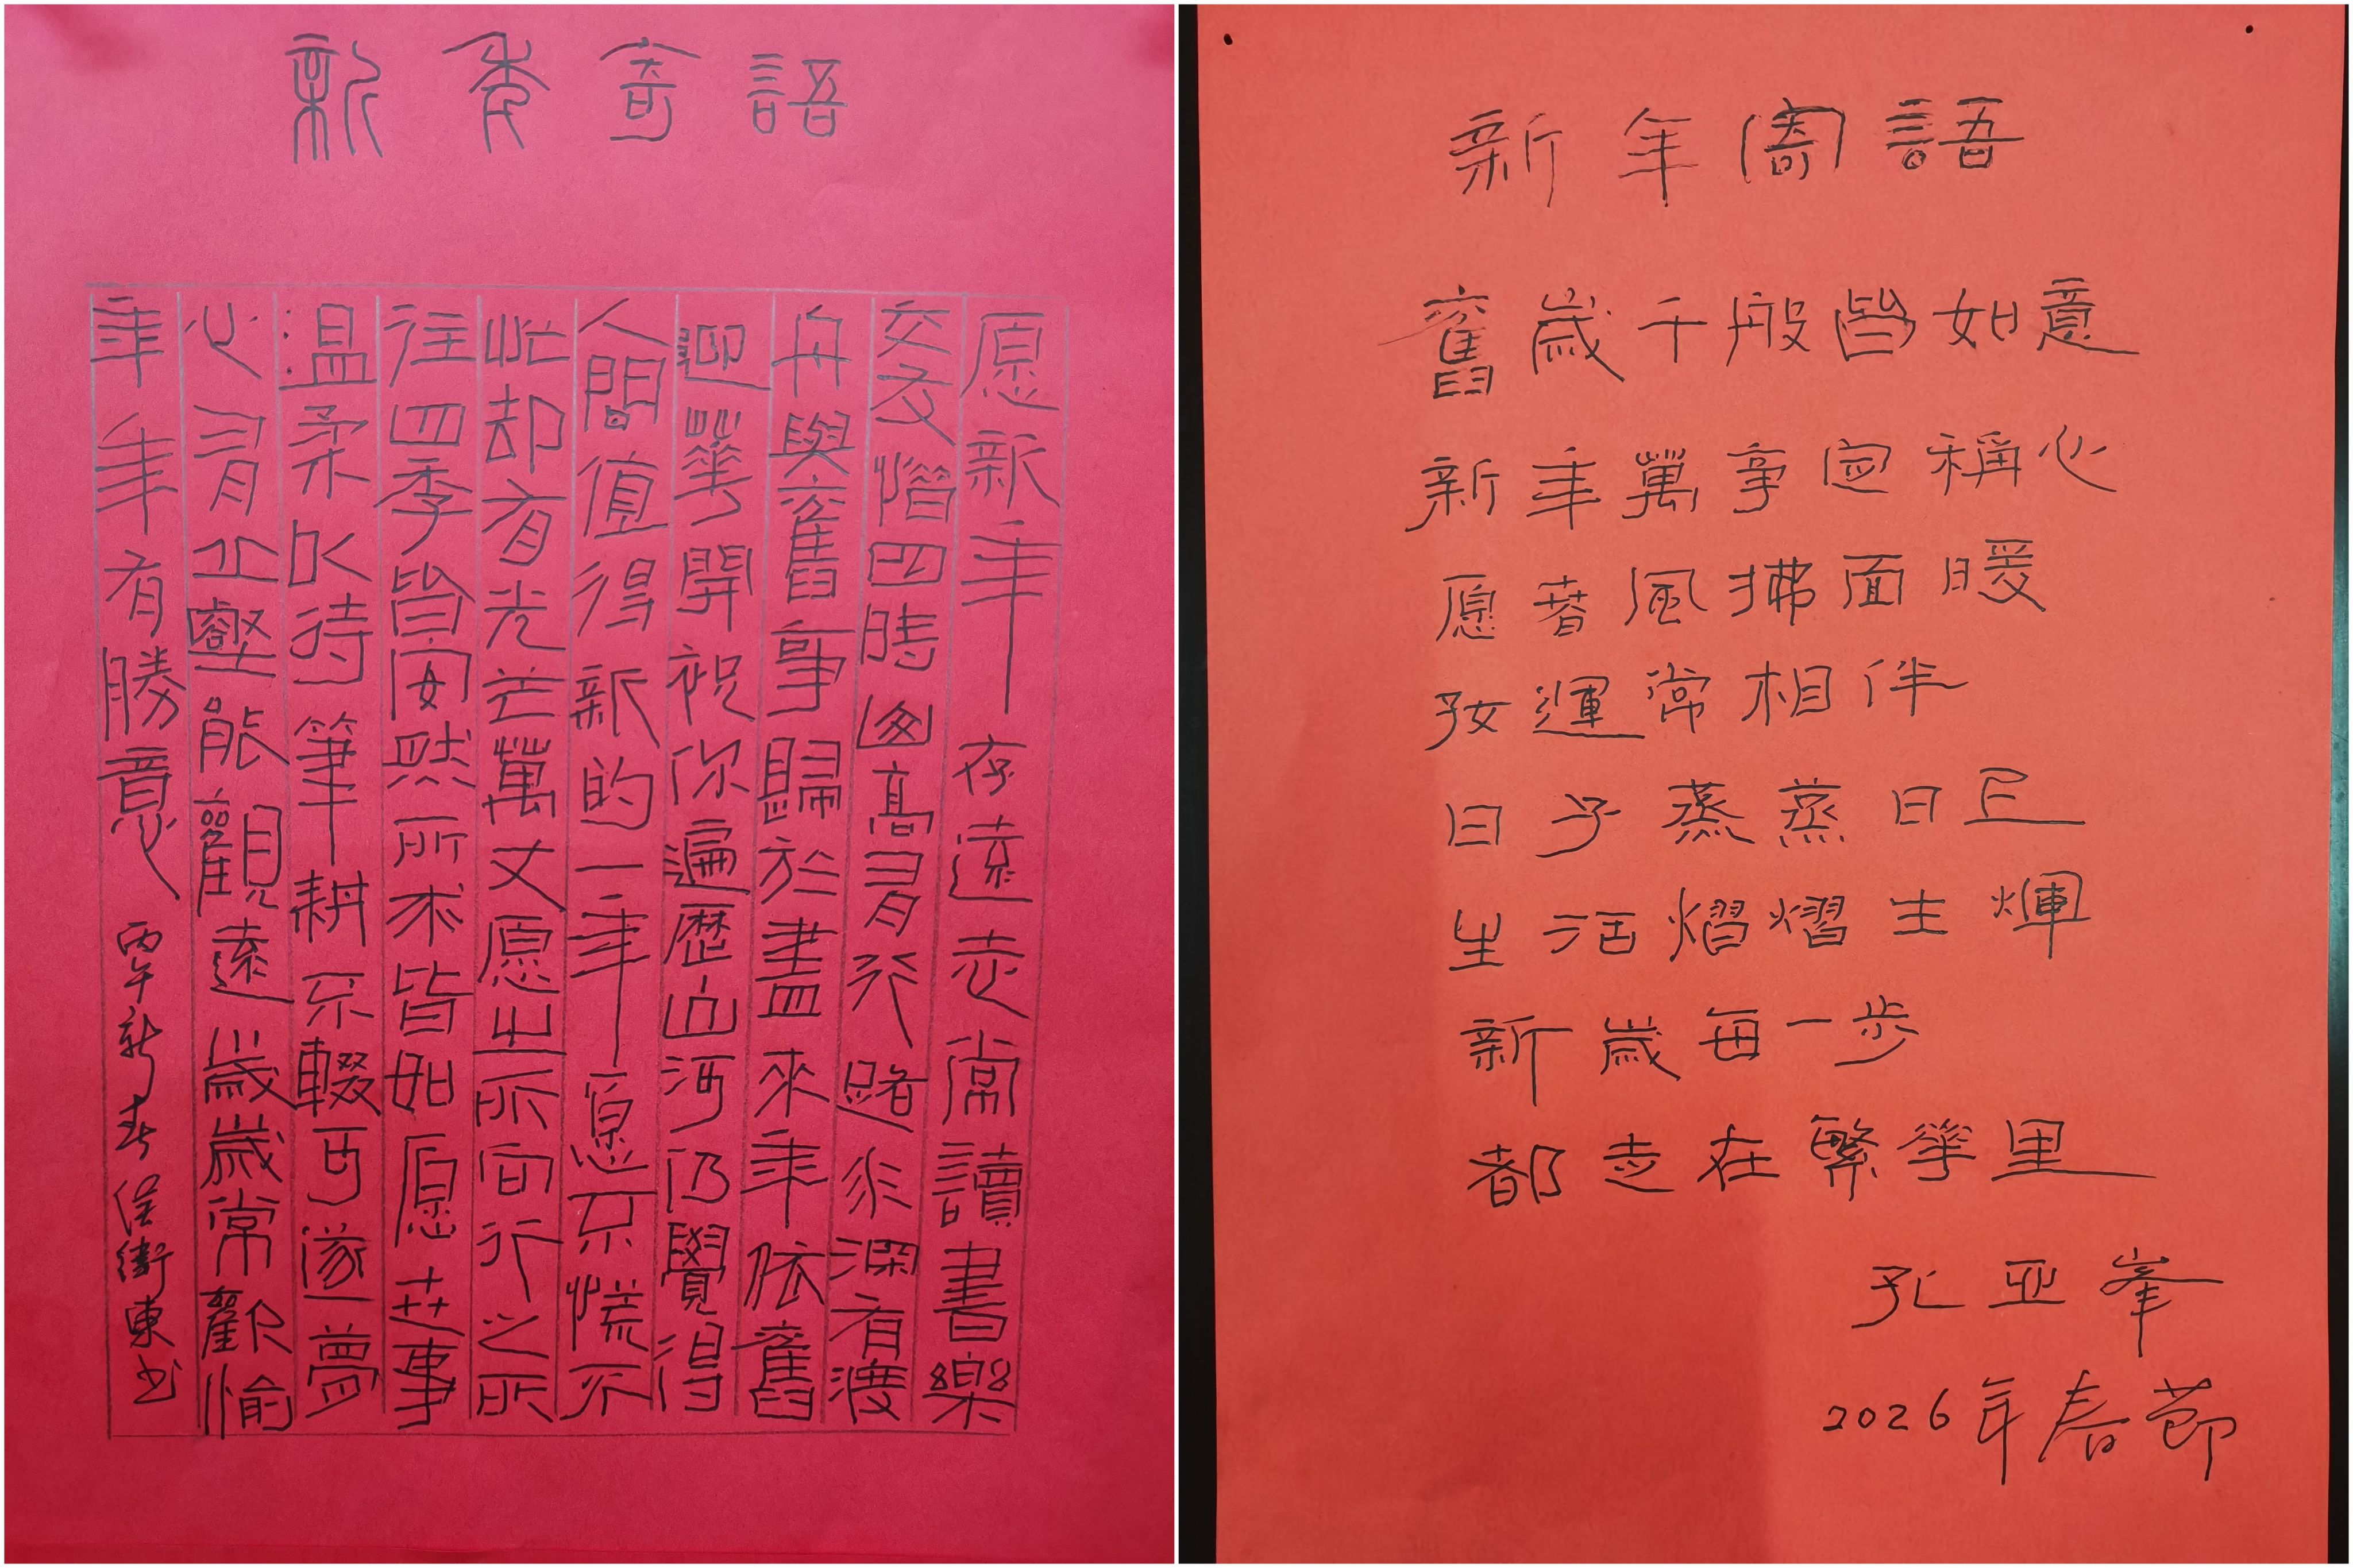 新年寄語
愿新年存遠志常讀書樂
交友惜四時山高有行路水深有渡
舟與舊事歸於盡來年依舊
迎華開祝你遍歷山河仍覺得
人間值得新的一年愿不慌不
忙却有光芒萬丈愿之所向行之所
往四季皆安然所求皆如愿世事
温柔以待筆耕不輟可遂夢
心有丘壑能觀遠歲歲常歡愉
年年有勝意 丙午新春侯衛東书
新年寄語
舊歲千般皆如意
新年萬事定稱心
愿春風拂面暖
好運常相伴
日子蒸蒸日上
生活熠熠生煇
新歲每一步
都走在繁華里
孔亚峯
2026年春節